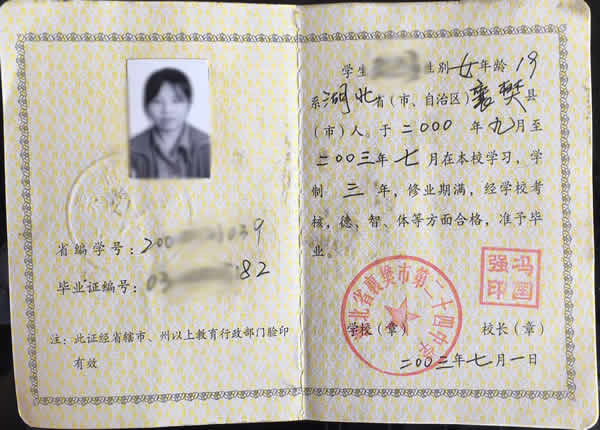 省编学号：200 039
毕业证编号：03 82
注：此证经省辖市、州以上教育行政部门验印
有效
学生 性别女年龄19
系湖北省（市、自治区）襄樊县
（市）人。于二000年九月至
二00三年七月在本校学习，学
制三年，修业期满，经学校考
核，德、智、体等方面合格，准予毕
业。
湖北省襄樊市第二十四中学
冯国
强印
学校（章） 校长（章）
二00三年七月一日